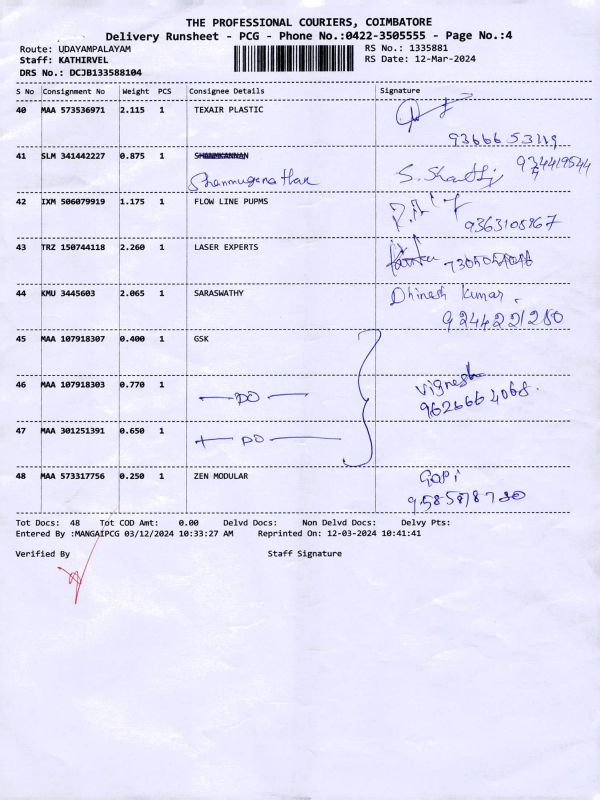 THE PROFESSIONAL COURIERS, COIMBATORE
Delivery Runsheet - PCG - Phone No.:0422-3505555 - Page No.:4
Route: UDAYAMPALAYAM RS No.: 1335881
Staff: KATHIRVEL RS Date: 12-Mar-2024
DRS No.: DCJB133588104
S No Consignment No Weight PCS Consignee Details Signature
40 MAA 573536971 2.115 1 TEXAIR PLASTIC
41 SLM 341442227 0.875 1
Shanmuganathan
42 IXM 506079919 1.175 1 FLOW LINE PUPMS
9363108967
43 TRZ 150744118 2.260 1 LASER EXPERTS
44 KMU 3445603 2.065 1 SARASWATHY Dhinesh Kumar.
9244221280
45 MAA 107918307 0.400 1 GSK
46 MAA 107918303 0.770 1 Vignesh
DO 9626664068.
47 MAA 301251391 0.650 1
DO
48 MAA 573317756 0.250 1 ZEN MODULAR Gopi
Tot Docs: 48 Tot COD Amt: 0.00 Delvd Docs: Non Delvd Docs: Delvy Pts:
Entered By :MANGAIPCG 03/12/2024 10:33:27 AM Reprinted On: 12-03-2024 10:41:41
Verified By Staff Signature